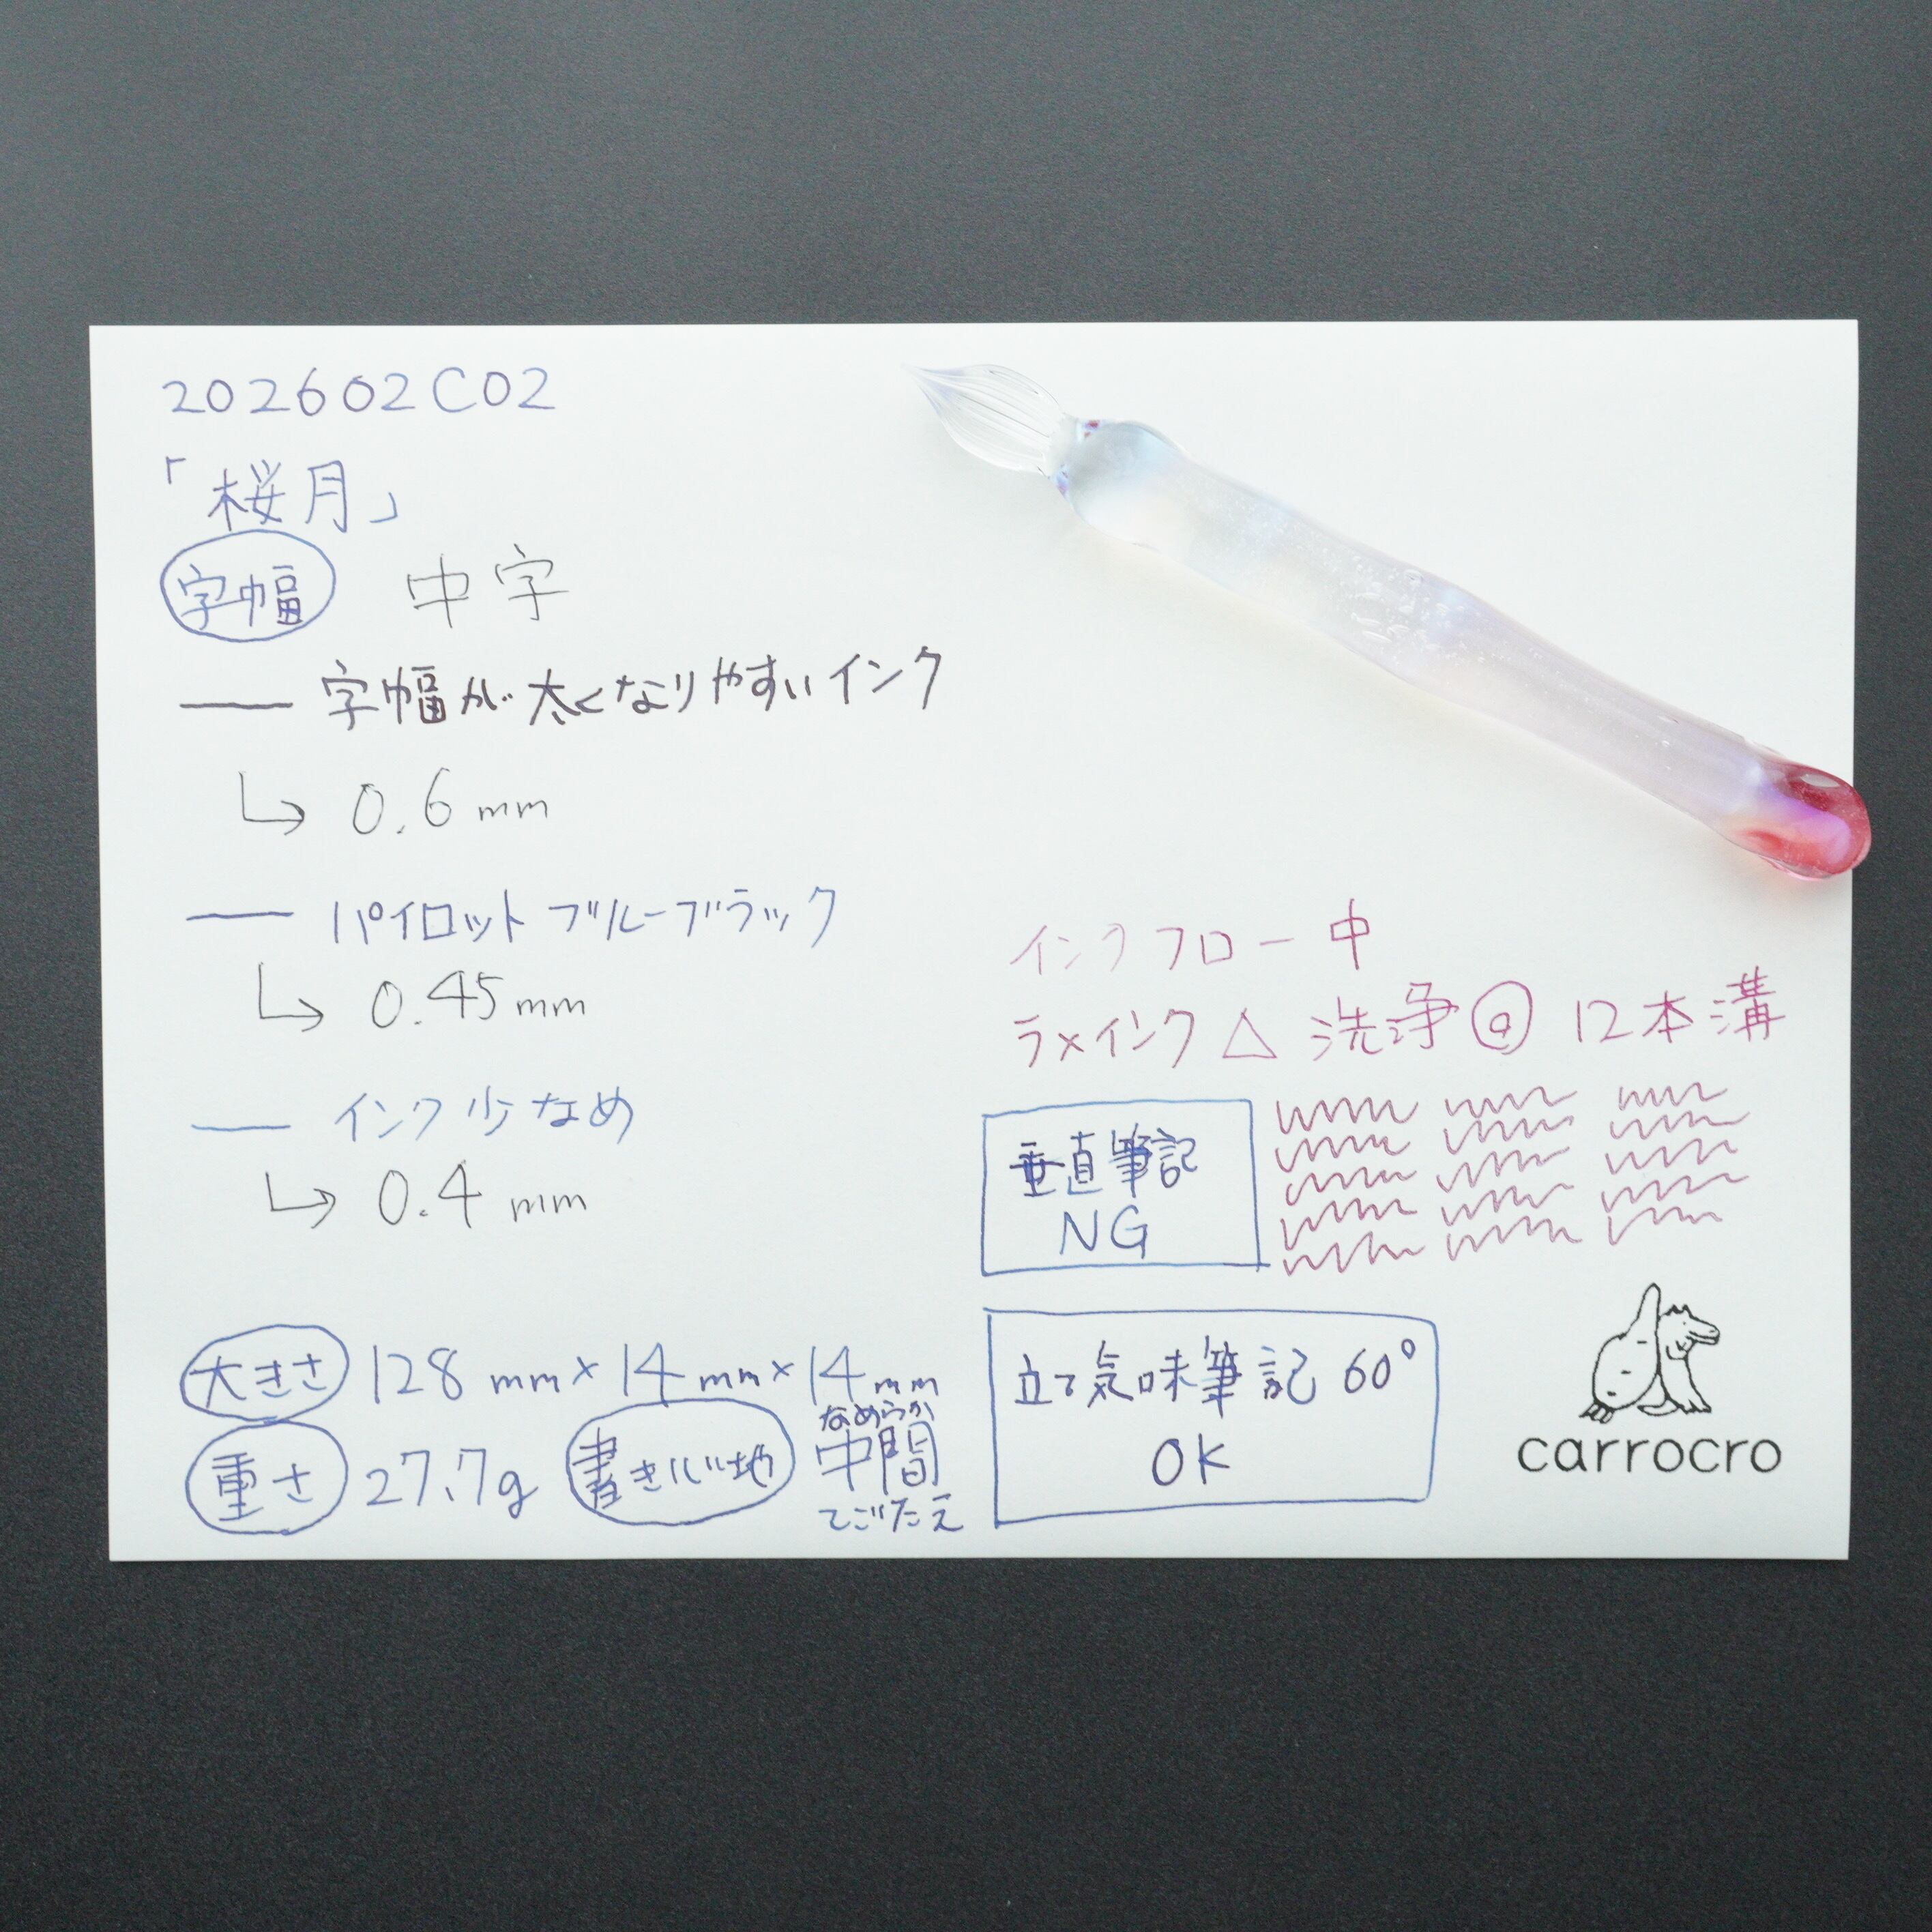 202602C02
「桜月」
字幅 中字
字幅が太くなりやすいインク
0.6mm
パイロットブルーブラック
0.45mm
インク少なめ
0.4mm
大きさ 128mm×14mm×14mm
重さ 27.7g 書き心地 なめらか 中間 てごたえ
インクフロー中
ラメインク△ 洗浄◎ 12本溝
垂直筆記
NG
立て気味筆記60°
OK
carrocro